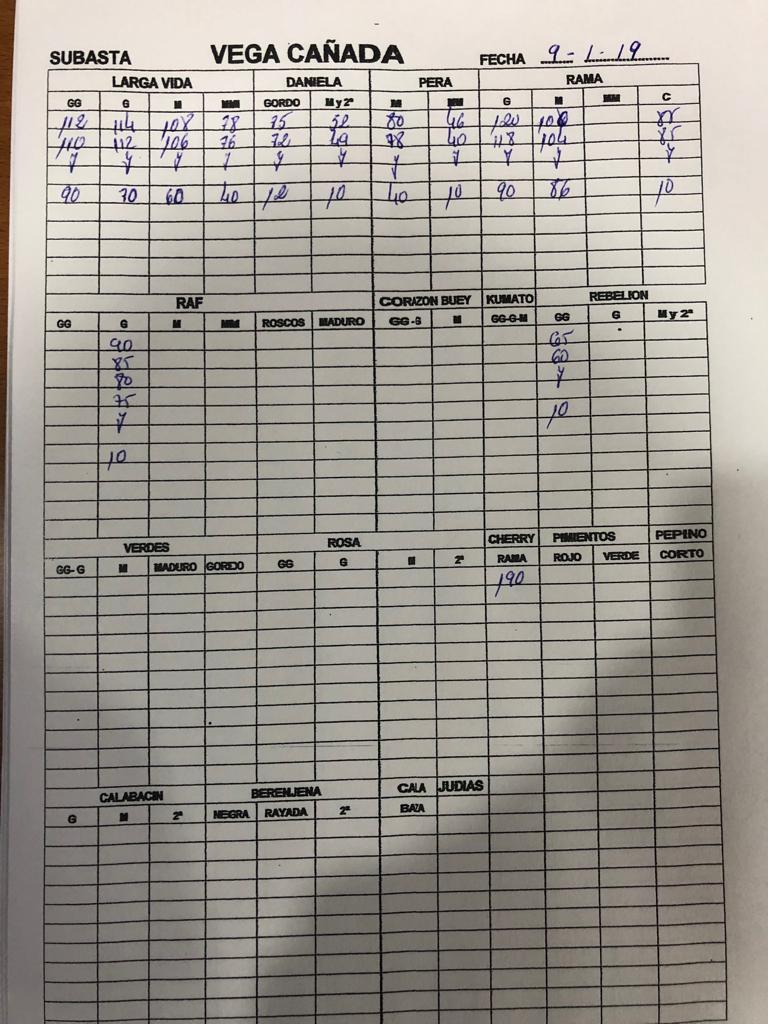 SUBASTA VEGA CAÑADA FECHA 9-1-19
LARGA VIDA DANIELA PERA RAMA
GG G M MM GORDO M y 2ª M MM G M MM C
112 114 108 78 75 52 80 46 120 88
110 112 106 76 72 49 78 40 118 104 85
Y Y Y Y Y Y Y Y Y Y Y
90 70 60 40 12 10 40 10 90 86 10
RAF CORAZON BUEY KUMATO REBELION
GG G M MM ROSCOS MADURO GG-G M GG-G-M GG G M y 2ª
90 65
85 60
80 Y
75
Y 10
10
VERDES ROSA CHERRY PIMIENTOS PEPINO
GG-G M MADURO GORDO GG G M 2ª RAMA ROJO VERDE CORTO
190
CALABACIN BERENJENA CALA JUDIAS
G M 2ª NEGRA RAYADA 2ª BAZA